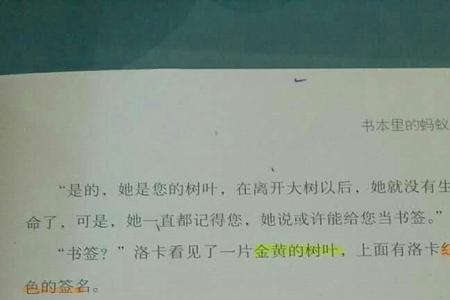 书本里的蚂蚁
“是的，她是您的树叶，在离开大树以后，她就没有生
命了，可是，她一直都记得您，她说或许能给您当书签。”
“书签？”洛卡看见了一片金黄的树叶，上面有洛卡红
色的签名。